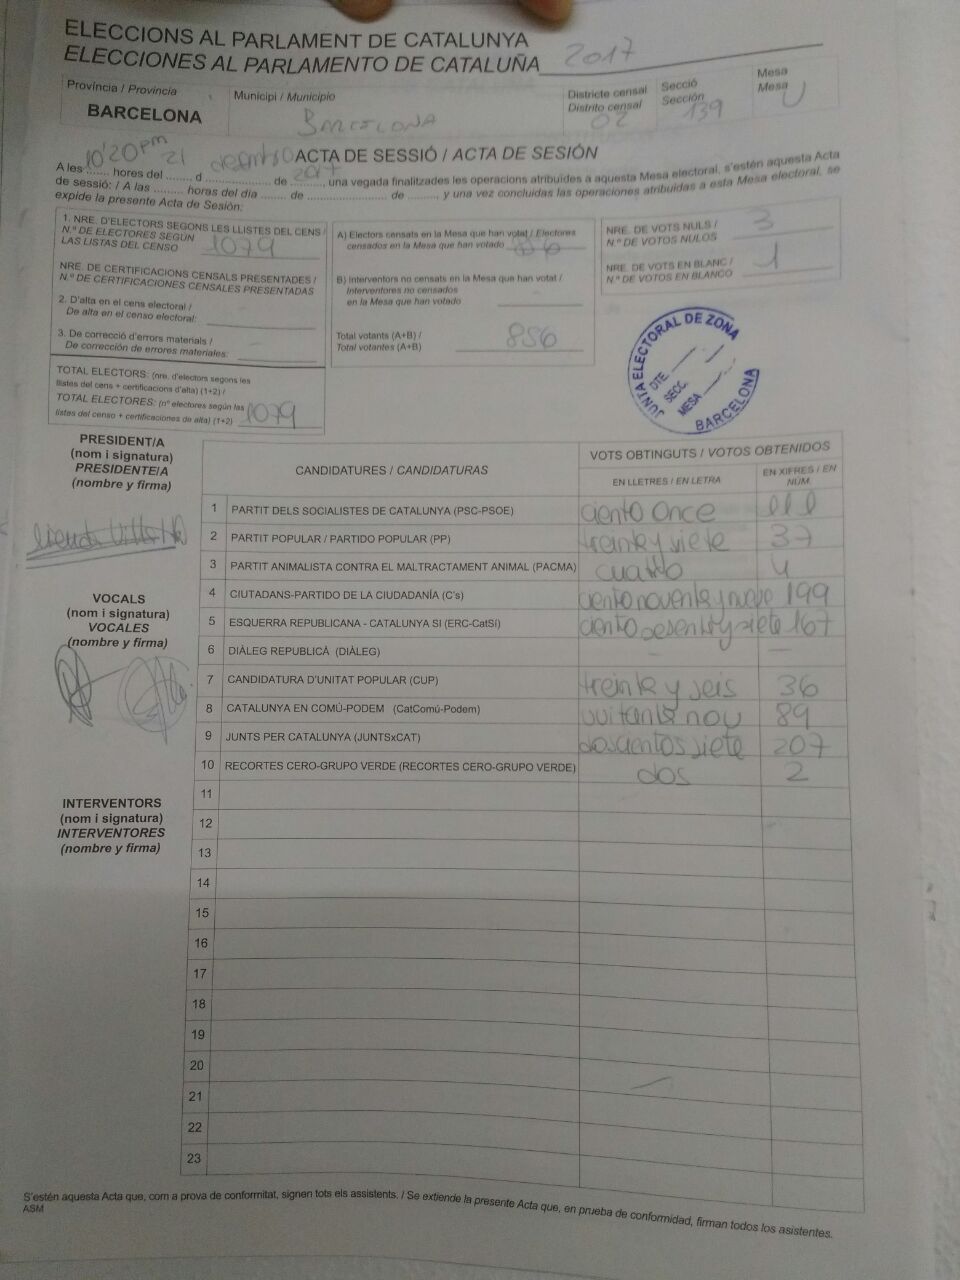 ELECCIONS AL PARLAMENT DE CATALUNYA
ELECCIONES AL PARLAMENTO DE CATALUÑA 2017
Província / Provincia
BARCELONA
Municipi / Municipio
BARCELONA
Districte censal
Distrito censal
02
Secció
Sección
139
Mesa
Mesa
U
10'20 pm 21 2017
ACTA DE SESSIÓ / ACTA DE SESIÓN
A les ....... hores del ....... d ................... de ........., una vegada finalitzades les operacions atribuïdes a aquesta Mesa electoral, s'estén aquesta Acta
de sessió: / A las ......... horas del día ....... de ...................... de ........, y una vez concluidas las operaciones atribuidas a esta Mesa electoral, se
expide la presente Acta de Sesión:
1. NRE. D'ELECTORS SEGONS LES LLISTES DEL CENS /
N.º DE ELECTORES SEGÚN
LAS LISTAS DEL CENSO 1079
NRE. DE CERTIFICACIONS CENSALS PRESENTADES /
N.º DE CERTIFICACIONES CENSALES PRESENTADAS
2. D'alta en el cens electoral /
De alta en el censo electoral: -
3. De correcció d'errors materials /
De corrección de errores materiales: -
TOTAL ELECTORS: (nre. d'electors segons les
llistes del cens + certificacions d'alta) (1+2) /
TOTAL ELECTORES: (nº electores según las
listas del censo + certificaciones de alta) (1+2) 1079
A) Electors censats en la Mesa que han votat / Electores
censados en la Mesa que han votado 856
B) Interventors no censats en la Mesa que han votat /
Interventores no censados
en la Mesa que han votado -
Total votants (A+B) /
Total votantes (A+B) 856
NRE. DE VOTS NULS /
N.º DE VOTOS NULOS 3
NRE. DE VOTS EN BLANC /
N.º DE VOTOS EN BLANCO 1
JUNTA ELECTORAL DE ZONA
DTE.
SECC.
MESA
BARCELONA
PRESIDENT/A
(nom i signatura)
PRESIDENTE/A
(nombre y firma)
VOCALS
(nom i signatura)
VOCALES
(nombre y firma)
INTERVENTORS
(nom i signatura)
INTERVENTORES
(nombre y firma)
CANDIDATURES / CANDIDATURAS
VOTS OBTINGUTS / VOTOS OBTENIDOS
EN LLETRES / EN LETRA
EN XIFRES / EN NÚM.
1 PARTIT DELS SOCIALISTES DE CATALUNYA (PSC-PSOE) ciento once 111
2 PARTIT POPULAR / PARTIDO POPULAR (PP) treinta y siete 37
3 PARTIT ANIMALISTA CONTRA EL MALTRACTAMENT ANIMAL (PACMA) cuatro 4
4 CIUTADANS-PARTIDO DE LA CIUDADANÍA (C's) ciento noventa y nueve 199
5 ESQUERRA REPUBLICANA - CATALUNYA SI (ERC-CatSí) ciento sesenta y siete 167
6 DIÀLEG REPUBLICÀ (DIÀLEG) - -
7 CANDIDATURA D'UNITAT POPULAR (CUP) treinta y seis 36
8 CATALUNYA EN COMÚ-PODEM (CatComú-Podem) vuitanta nou 89
9 JUNTS PER CATALUNYA (JUNTSxCAT) doscientos siete 207
10 RECORTES CERO-GRUPO VERDE (RECORTES CERO-GRUPO VERDE) dos 2
11
12
13
14
15
16
17
18
19
20
21
22
23
S'estén aquesta Acta que, com a prova de conformitat, signen tots els assistents. / Se extiende la presente Acta que, en prueba de conformidad, firman todos los asistentes.
ASM